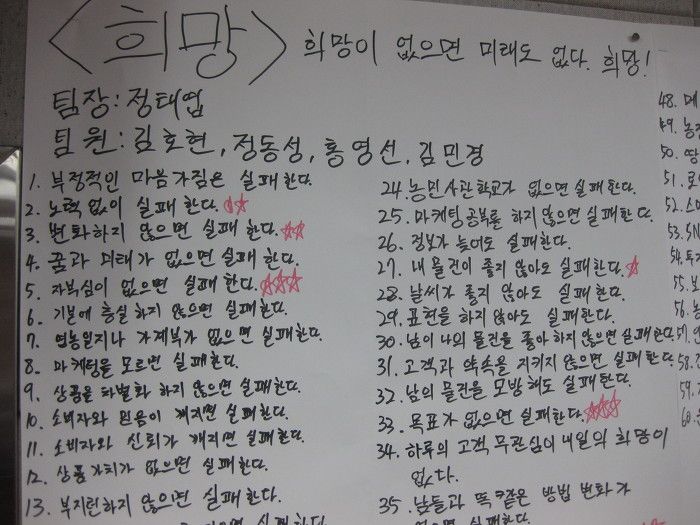 <희망> 희망이 없으면 미래도 없다. 희망!
팀장: 정태엽
팀원: 김호현, 정동성, 홍영선, 김민경
1. 부정적인 마음가짐은 실패한다.
2. 노력없이 실패한다.
3. 변화하지 않으면 실패한다.
4. 꿈과 미래가 없으면 실패한다.
5. 자부심이 없으면 실패한다.
6. 기본에 충실하지 않으면 실패한다.
7. 영농일지나 가계부가 없으면 실패한다.
8. 마케팅을 모르면 실패한다.
9. 상품을 차별화 하지 않으면 실패한다.
10. 소비자와 믿음이 깨지면 실패한다.
11. 소비자와 신뢰가 깨지면 실패한다.
12. 상품가치가 없으면 실패한다.
13. 부지런하지 않으면 실패한다.
24. 농민사관학교가 없으면 실패한다.
25. 마케팅공부를 하지 않으면 실패한다.
26. 정보가 늦어도 실패한다.
27. 내 물건이 좋지 않아도 실패한다.
28. 날씨가 좋지 않아도 실패한다.
29. 표현을 하지 않아도 실패한다.
30. 남이 나의 물건을 좋아 하지 않으면 실패한다.
31. 고객과 약속을 지키지 않으면 실패한다.
32. 남의 물건을 모방해도 실패한다.
33. 목표가 없으면 실패한다.
34. 하루의 고객 무관심이 내일의 희망이
없다.
35. 남들과 똑같은 방법 변화가
없으면 실패한다.
48.
49. 농
50. 땅
51.
52. 스
53. SN
54.
55.
56.
57.
58.
59.
60.